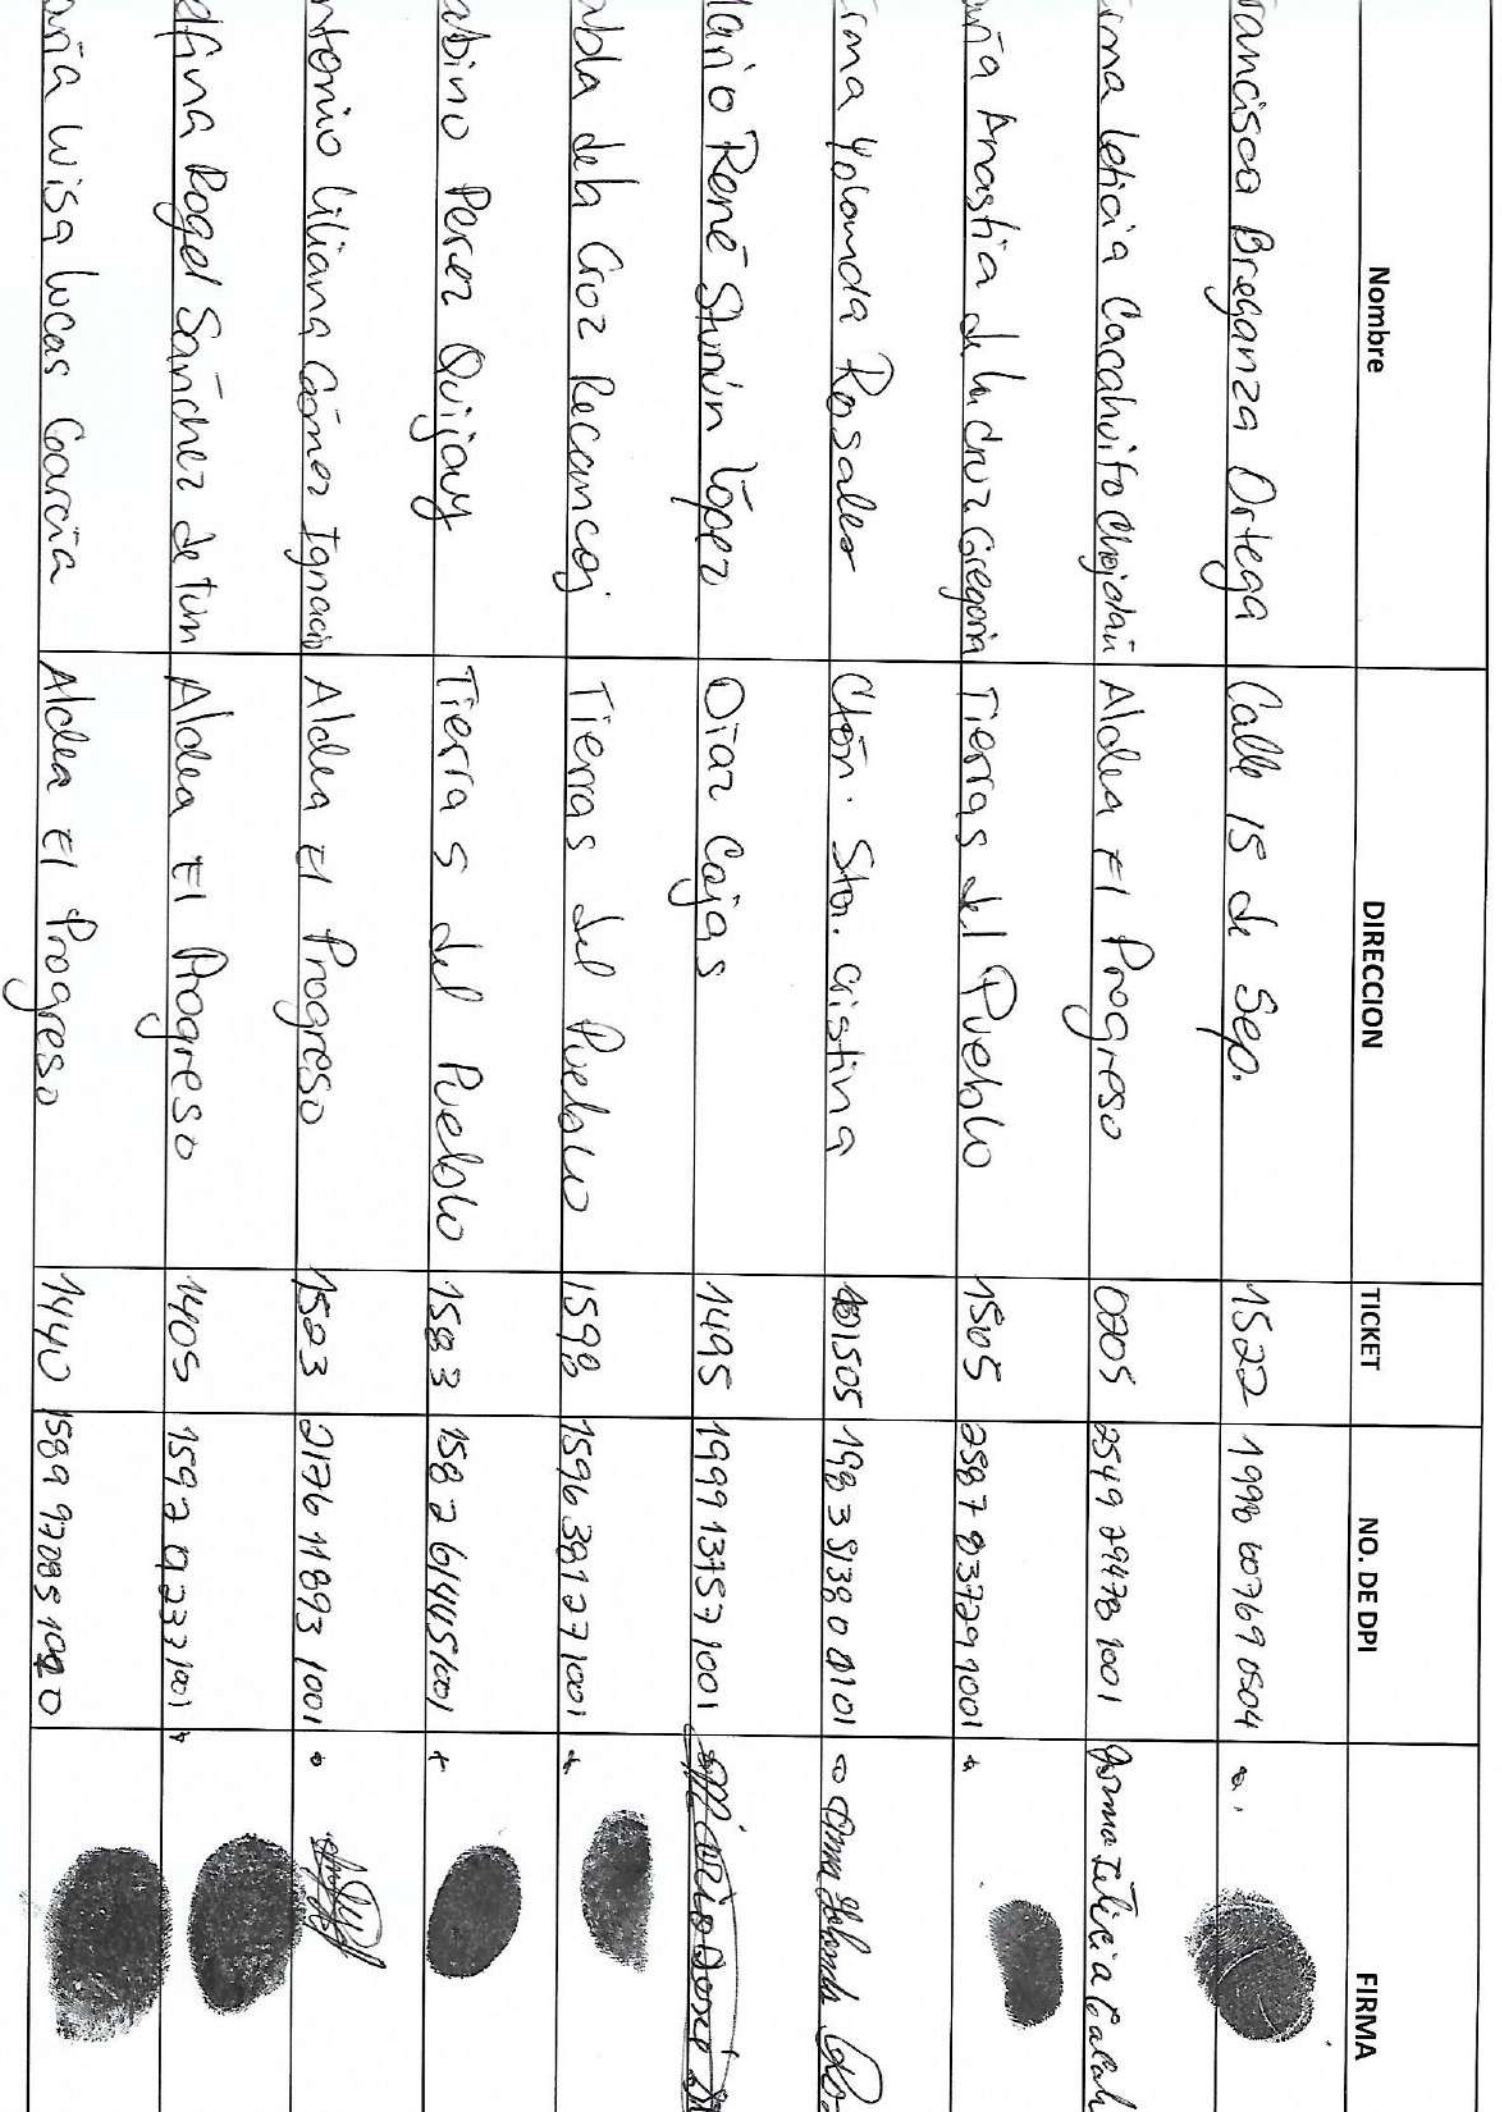 Nombre DIRECCION TICKET NO. DE DPI FIRMA
rancisca Breganza Ortega Calle 15 de Sep. 1522 0504
rma leticia Cacahuito Aldea El Progreso 0205 2549 29478 1001
aria Anastia de la cruz Gregoria Tierras del Pueblo 1505 2587 83729 1001
rma Yolounda Rosales Cton. Sta. cristina 1505 1983 0101
ario René López Díaz Cajas 1495 1999 13757 1001
abla de la Croz Recancoj Tierras del Pueblo 1598 1596 38127 1001
abino Perez Quijay Tierras del Pueblo 1583 1582 61445 1001
ntonio Liliana Gómez Ignacio Aldea El Progreso 1523 2176 11893 1001
elfina Rogel Sánchez de Tum Aldea El Progreso 1405 1001
aría Luisa Lucas García Aldea El Progreso 1440 1589 97285